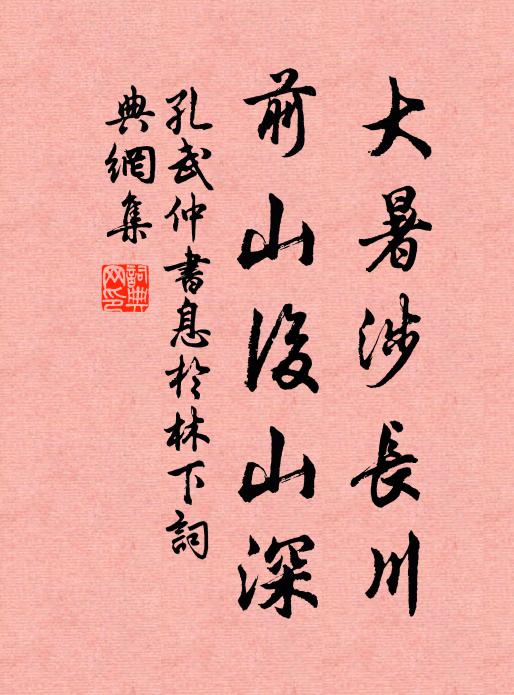 大暑涉長川
前山後山深
孔武仲書息於林下詞
典網集
詞典
网印